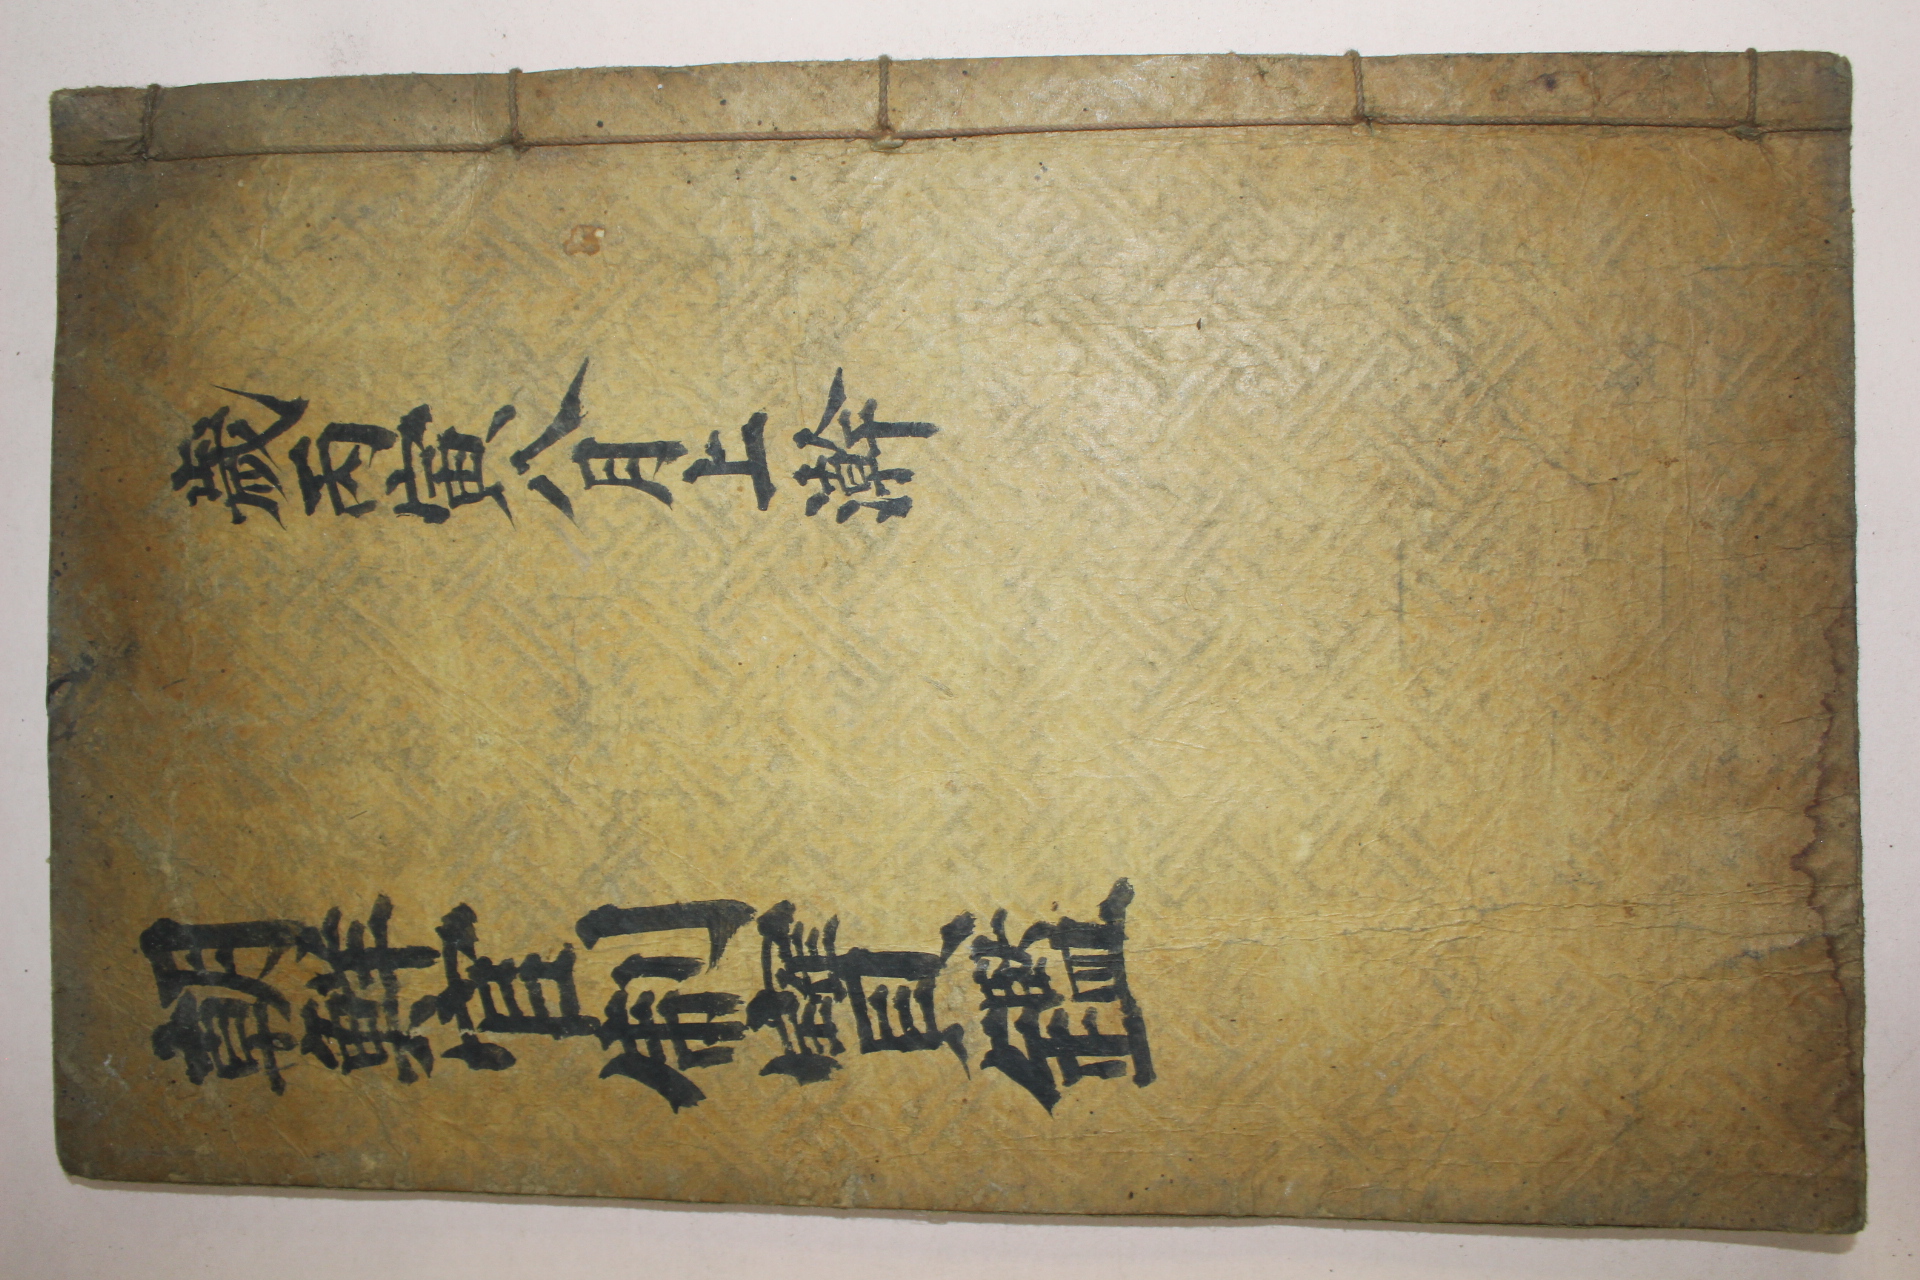 歲丙寅八月上澣
朝鮮寶鑑